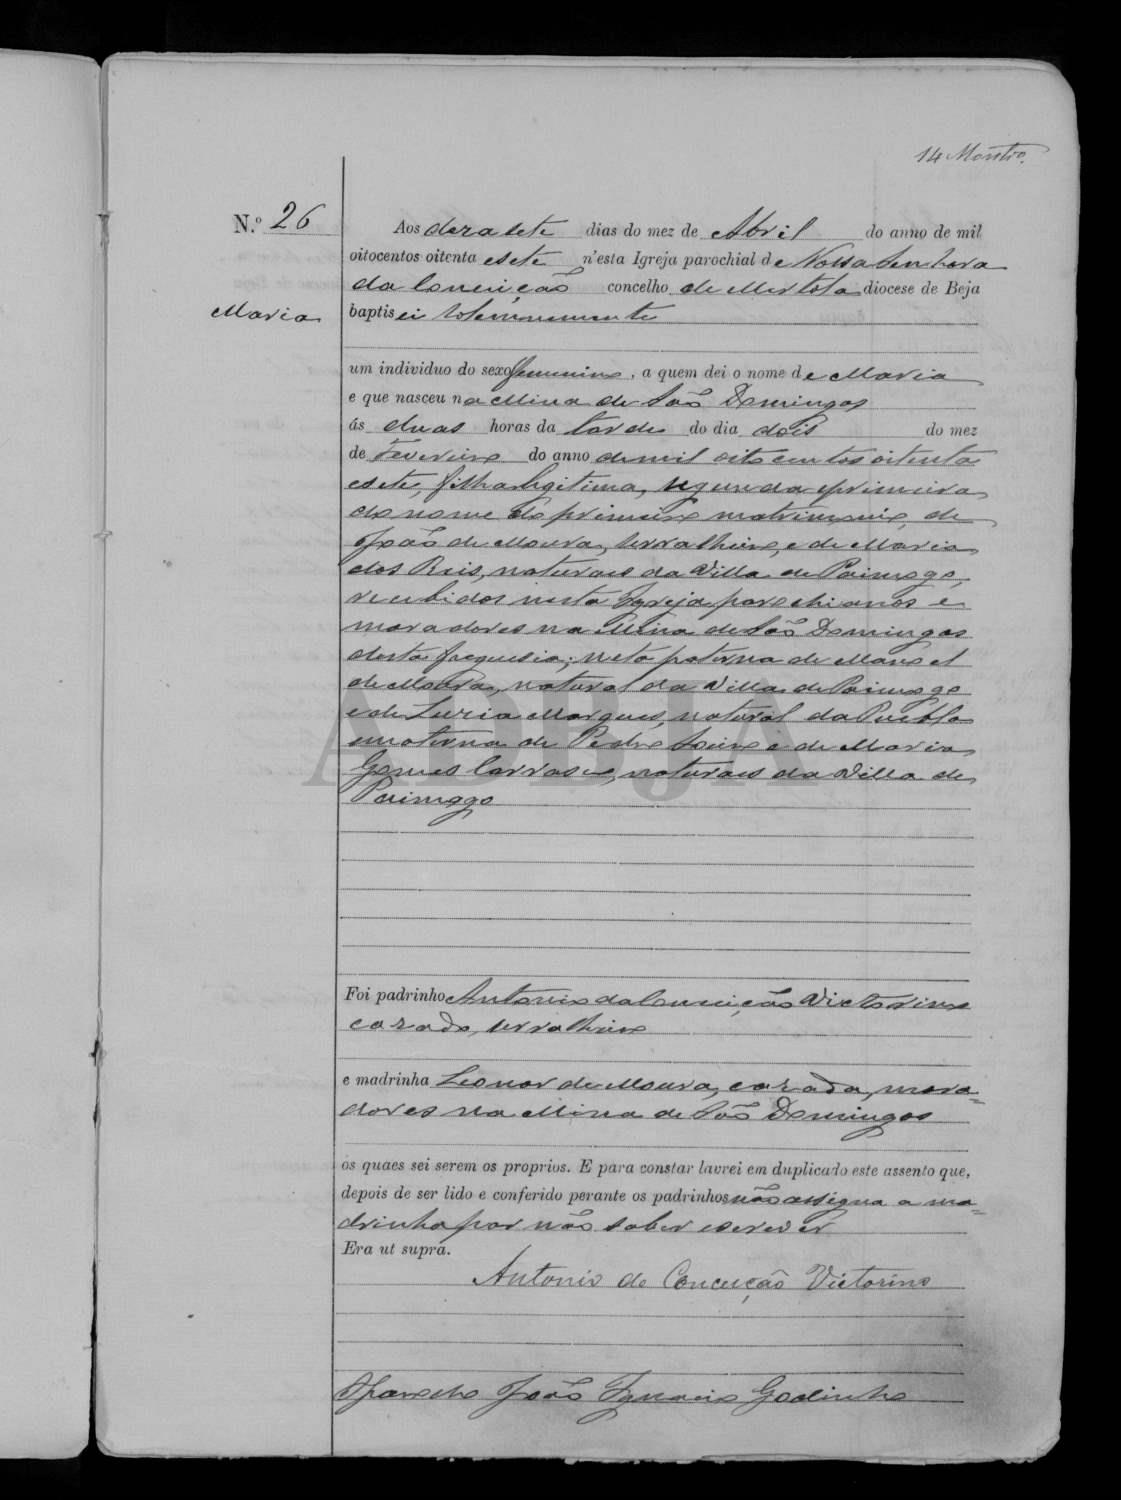 14 Montrº.
N.º 26
Aos dezasete dias do mez de Abril do anno de mil
oitocentos oitenta esete n'esta Igreja parochial de Nossa Senhora
da Conceição concelho de Mertola diocese de Beja
Maria
baptisei solemnemente
um individuo do sexo femenino, a quem dei o nome de Maria
e que nasceu na Mina de São Domingos
ás duas horas da tarde do dia dois do mez
de Fevereiro do anno de mil oito centos oitenta
esete, filha legitima, segunda eprimeira
do nome do primeiro matrimonio, de
João de Moura, serralheiro, e de Maria
dos Reis, naturaes da Villa de Paimogo,
recebidos nesta Igreja parochianos e
moradores na Mina de São Domingos
desta freguesia; neta paterna de Manoel
de Moura, natural da Villa de Paimogo
e de Luzia Marques, natural da Puebla
ematerna de Pedro Soeiro e de Maria
Gomes Carrasco, naturaes da Villa de
Paimogo
ADBJA
Foi padrinho Antonio da Conceição Victorino
cazado, serralheiro
e madrinha Leonor de Moura, cazada, mora=
dores na Mina de São Domingos
os quaes sei serem os proprios. E para constar lavrei em duplicado este assento que,
depois de ser lido e conferido perante os padrinhos não assigna a ma=
drinha por não saber escrever
Era ut supra.
Antonio de Conceição Victorino
O Parocho João Ignacio Godinho